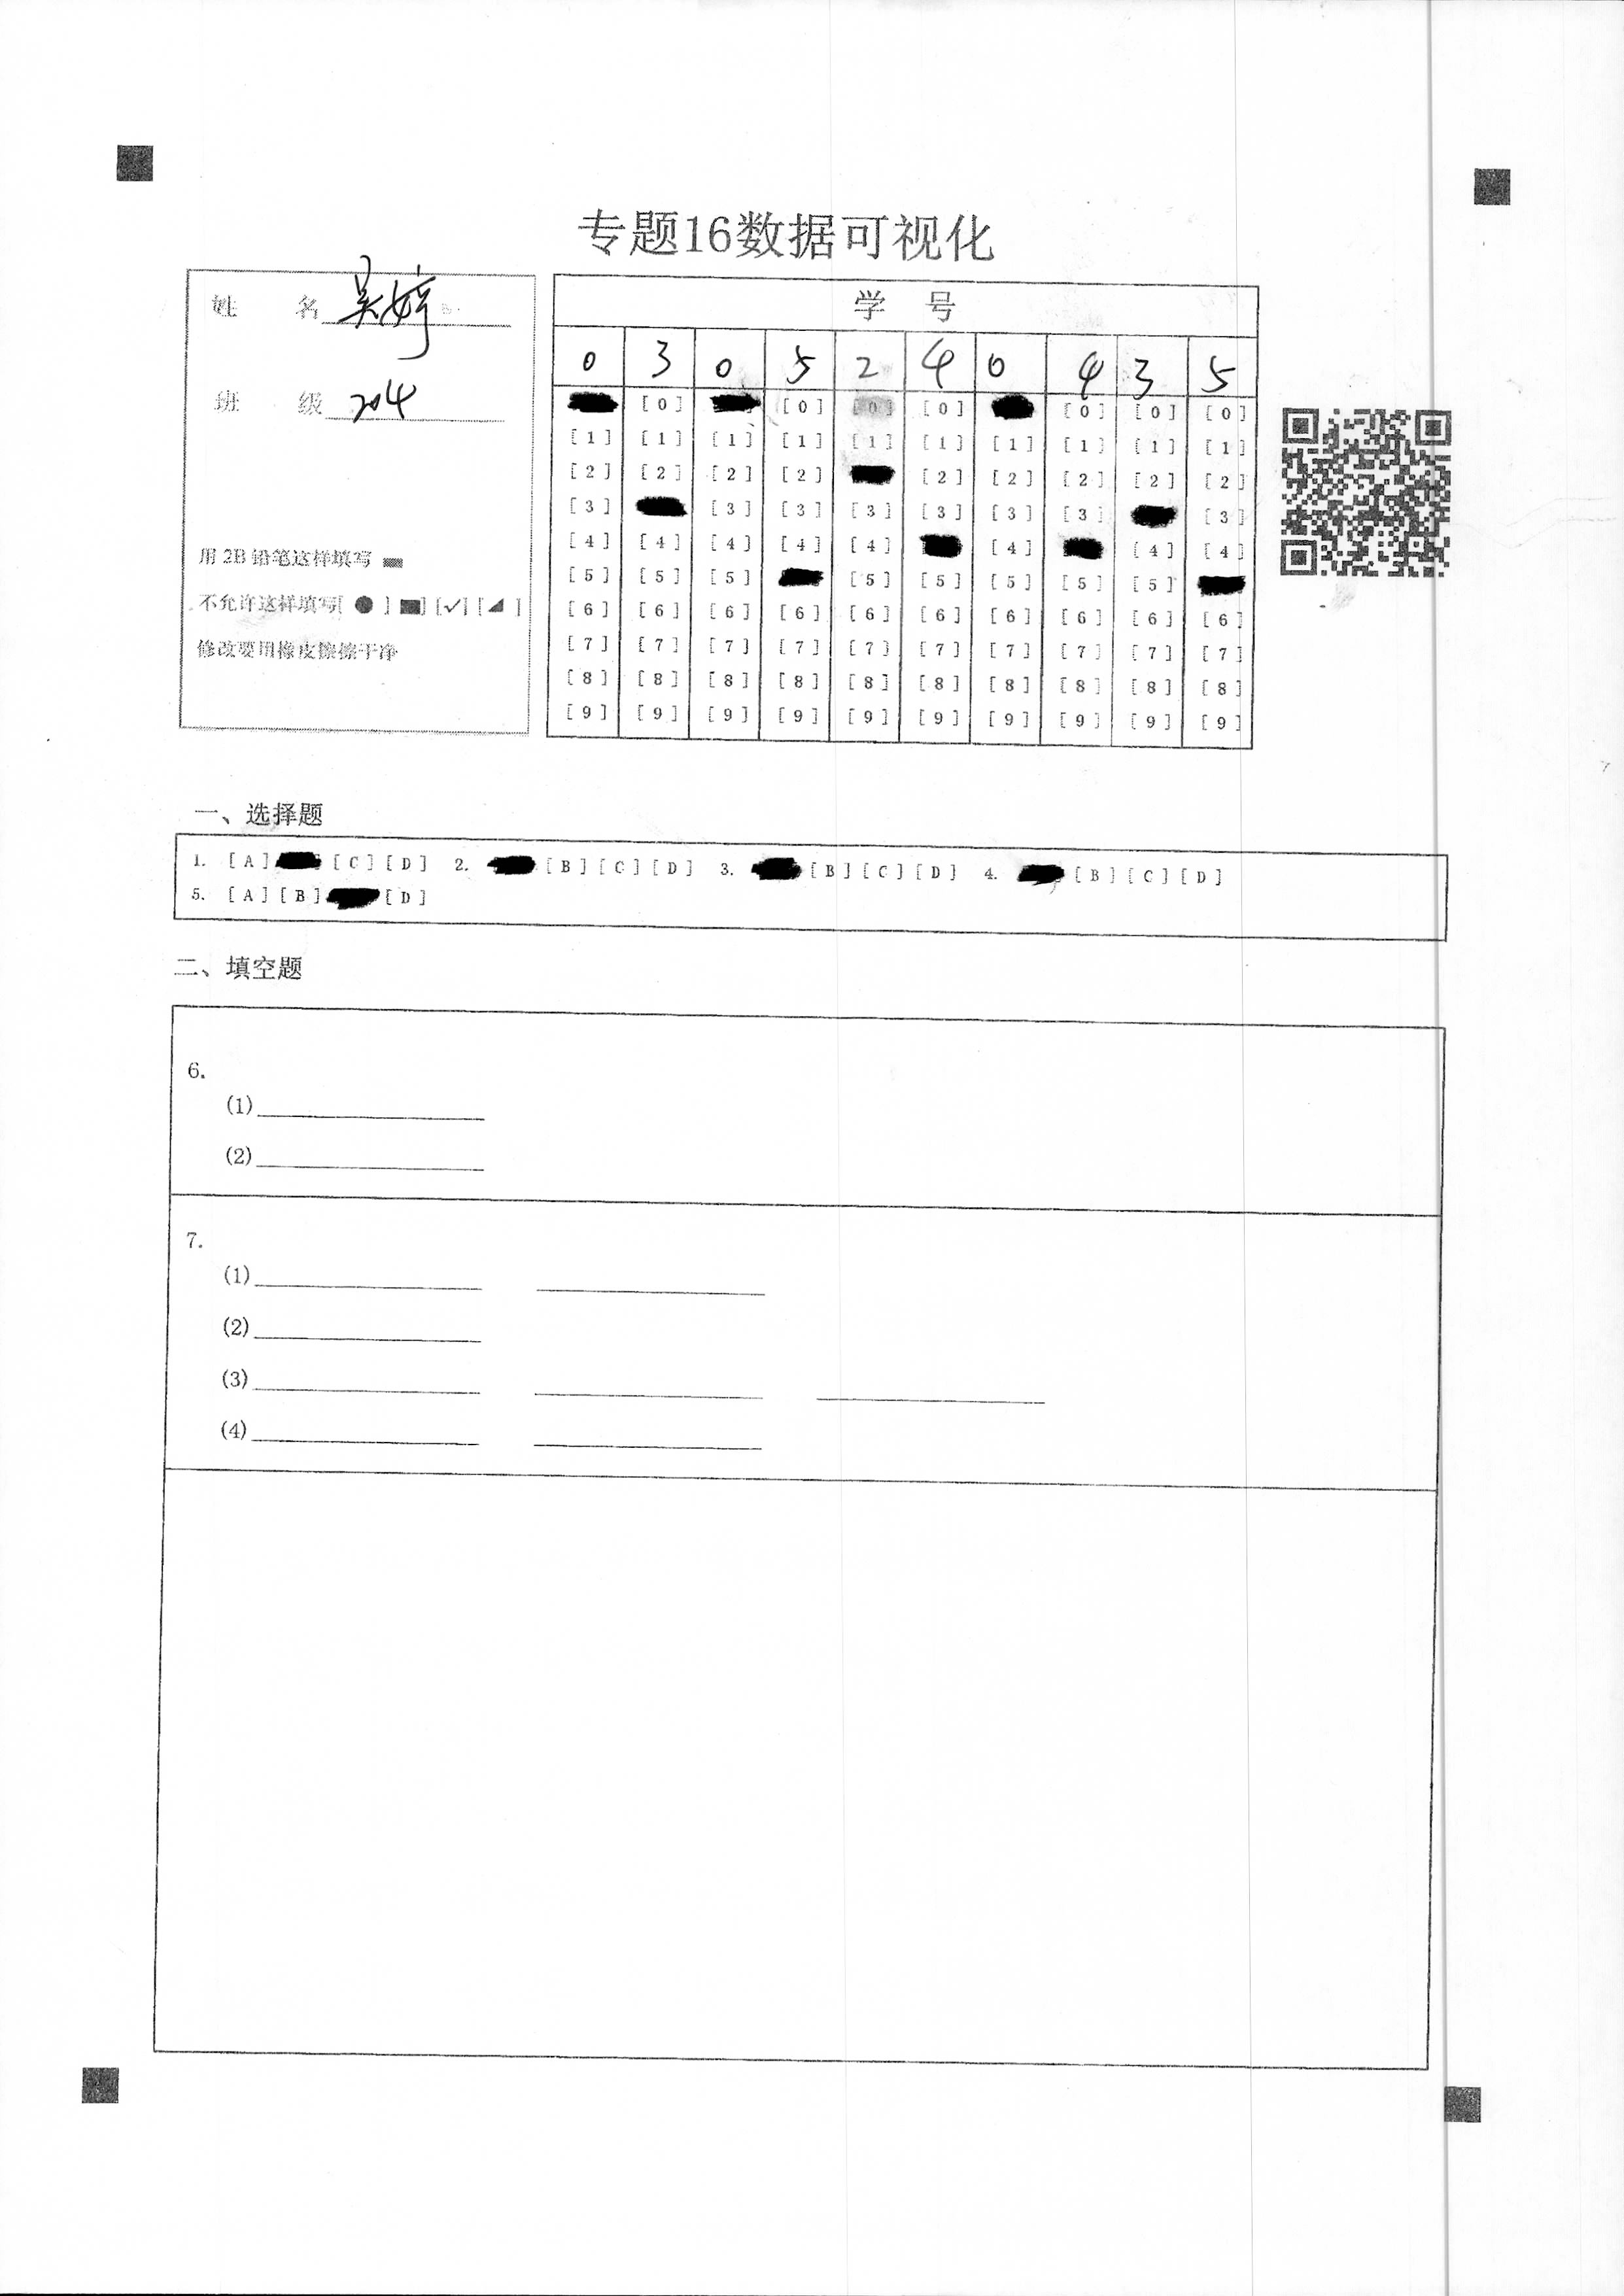 专题16数据可视化
姓 名 吴婷
班 级 204
用 2B 铅笔这样填写
不允许这样填写[ ● ] [■] [✓] [◢ ]
修改要用橡皮擦擦干净
学 号
0 3 0 5 2 4 0 4 3 5
[0] [0] [0] [0] [0] [0] [0]
[1] [1] [1] [1] [1] [1] [1] [1] [1] [1]
[2] [2] [2] [2] [2] [2] [2] [2] [2]
[3] [3] [3] [3] [3] [3] [3] [3]
[4] [4] [4] [4] [4] [4] [4] [4]
[5] [5] [5] [5] [5] [5] [5] [5]
[6] [6] [6] [6] [6] [6] [6] [6] [6] [6]
[7] [7] [7] [7] [7] [7] [7] [7] [7] [7]
[8] [8] [8] [8] [8] [8] [8] [8] [8] [8]
[9] [9] [9] [9] [9] [9] [9] [9] [9] [9]
一、选择题
1. [A] [C] [D] 2. [B] [C] [D] 3. [B] [C] [D] 4. [B] [C] [D]
5. [A] [B] [D]
二、填空题
6.
(1)
(2)
7.
(1)
(2)
(3)
(4)